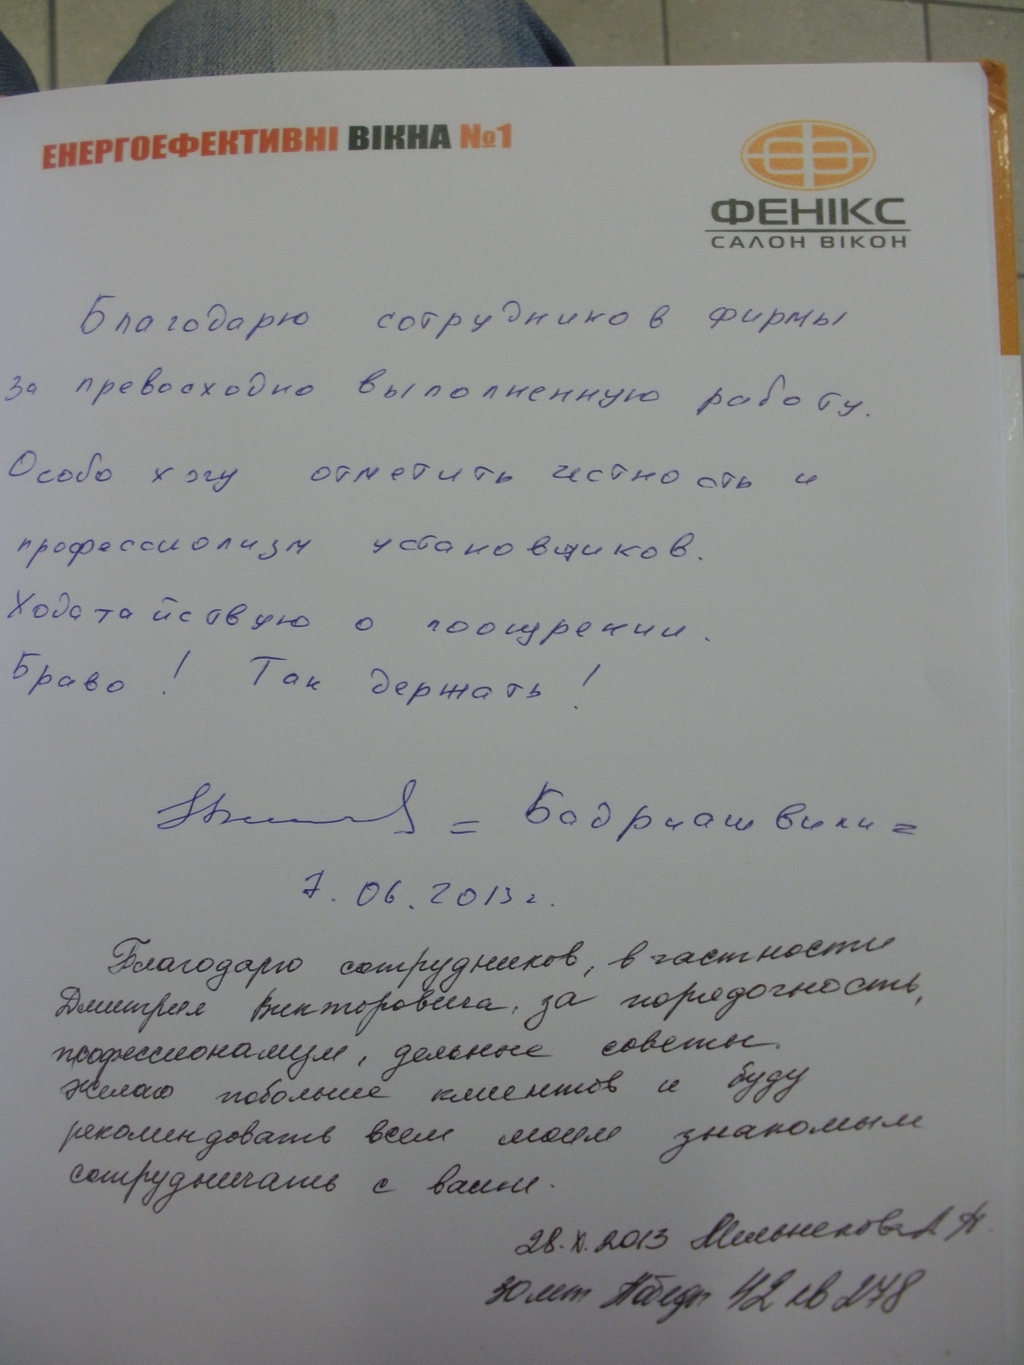 ЕНЕРГОЕФЕКТИВНІ ВІКНА №1
ФЕНІКС
САЛОН ВІКОН
Благодарю сотрудников фирмы
за превосходно выполненную работу.
Особо хочу отметить честность и
профессиолизм установщиков.
Ходатайствую о поощрении.
Браво! Так держать!
= Бадриашвили =
7.06.2013г.
Благодарю сотрудников, в частности
Дмитрия Викторовича, за порядочность,
профессионализм, дельные советы.
Желаю побольше клиентов и буду
рекомендовать всем моим знакомым
сотрудничать с вами.
28.XI.2013 Мельникова
30 лет Победы 42 кв 278